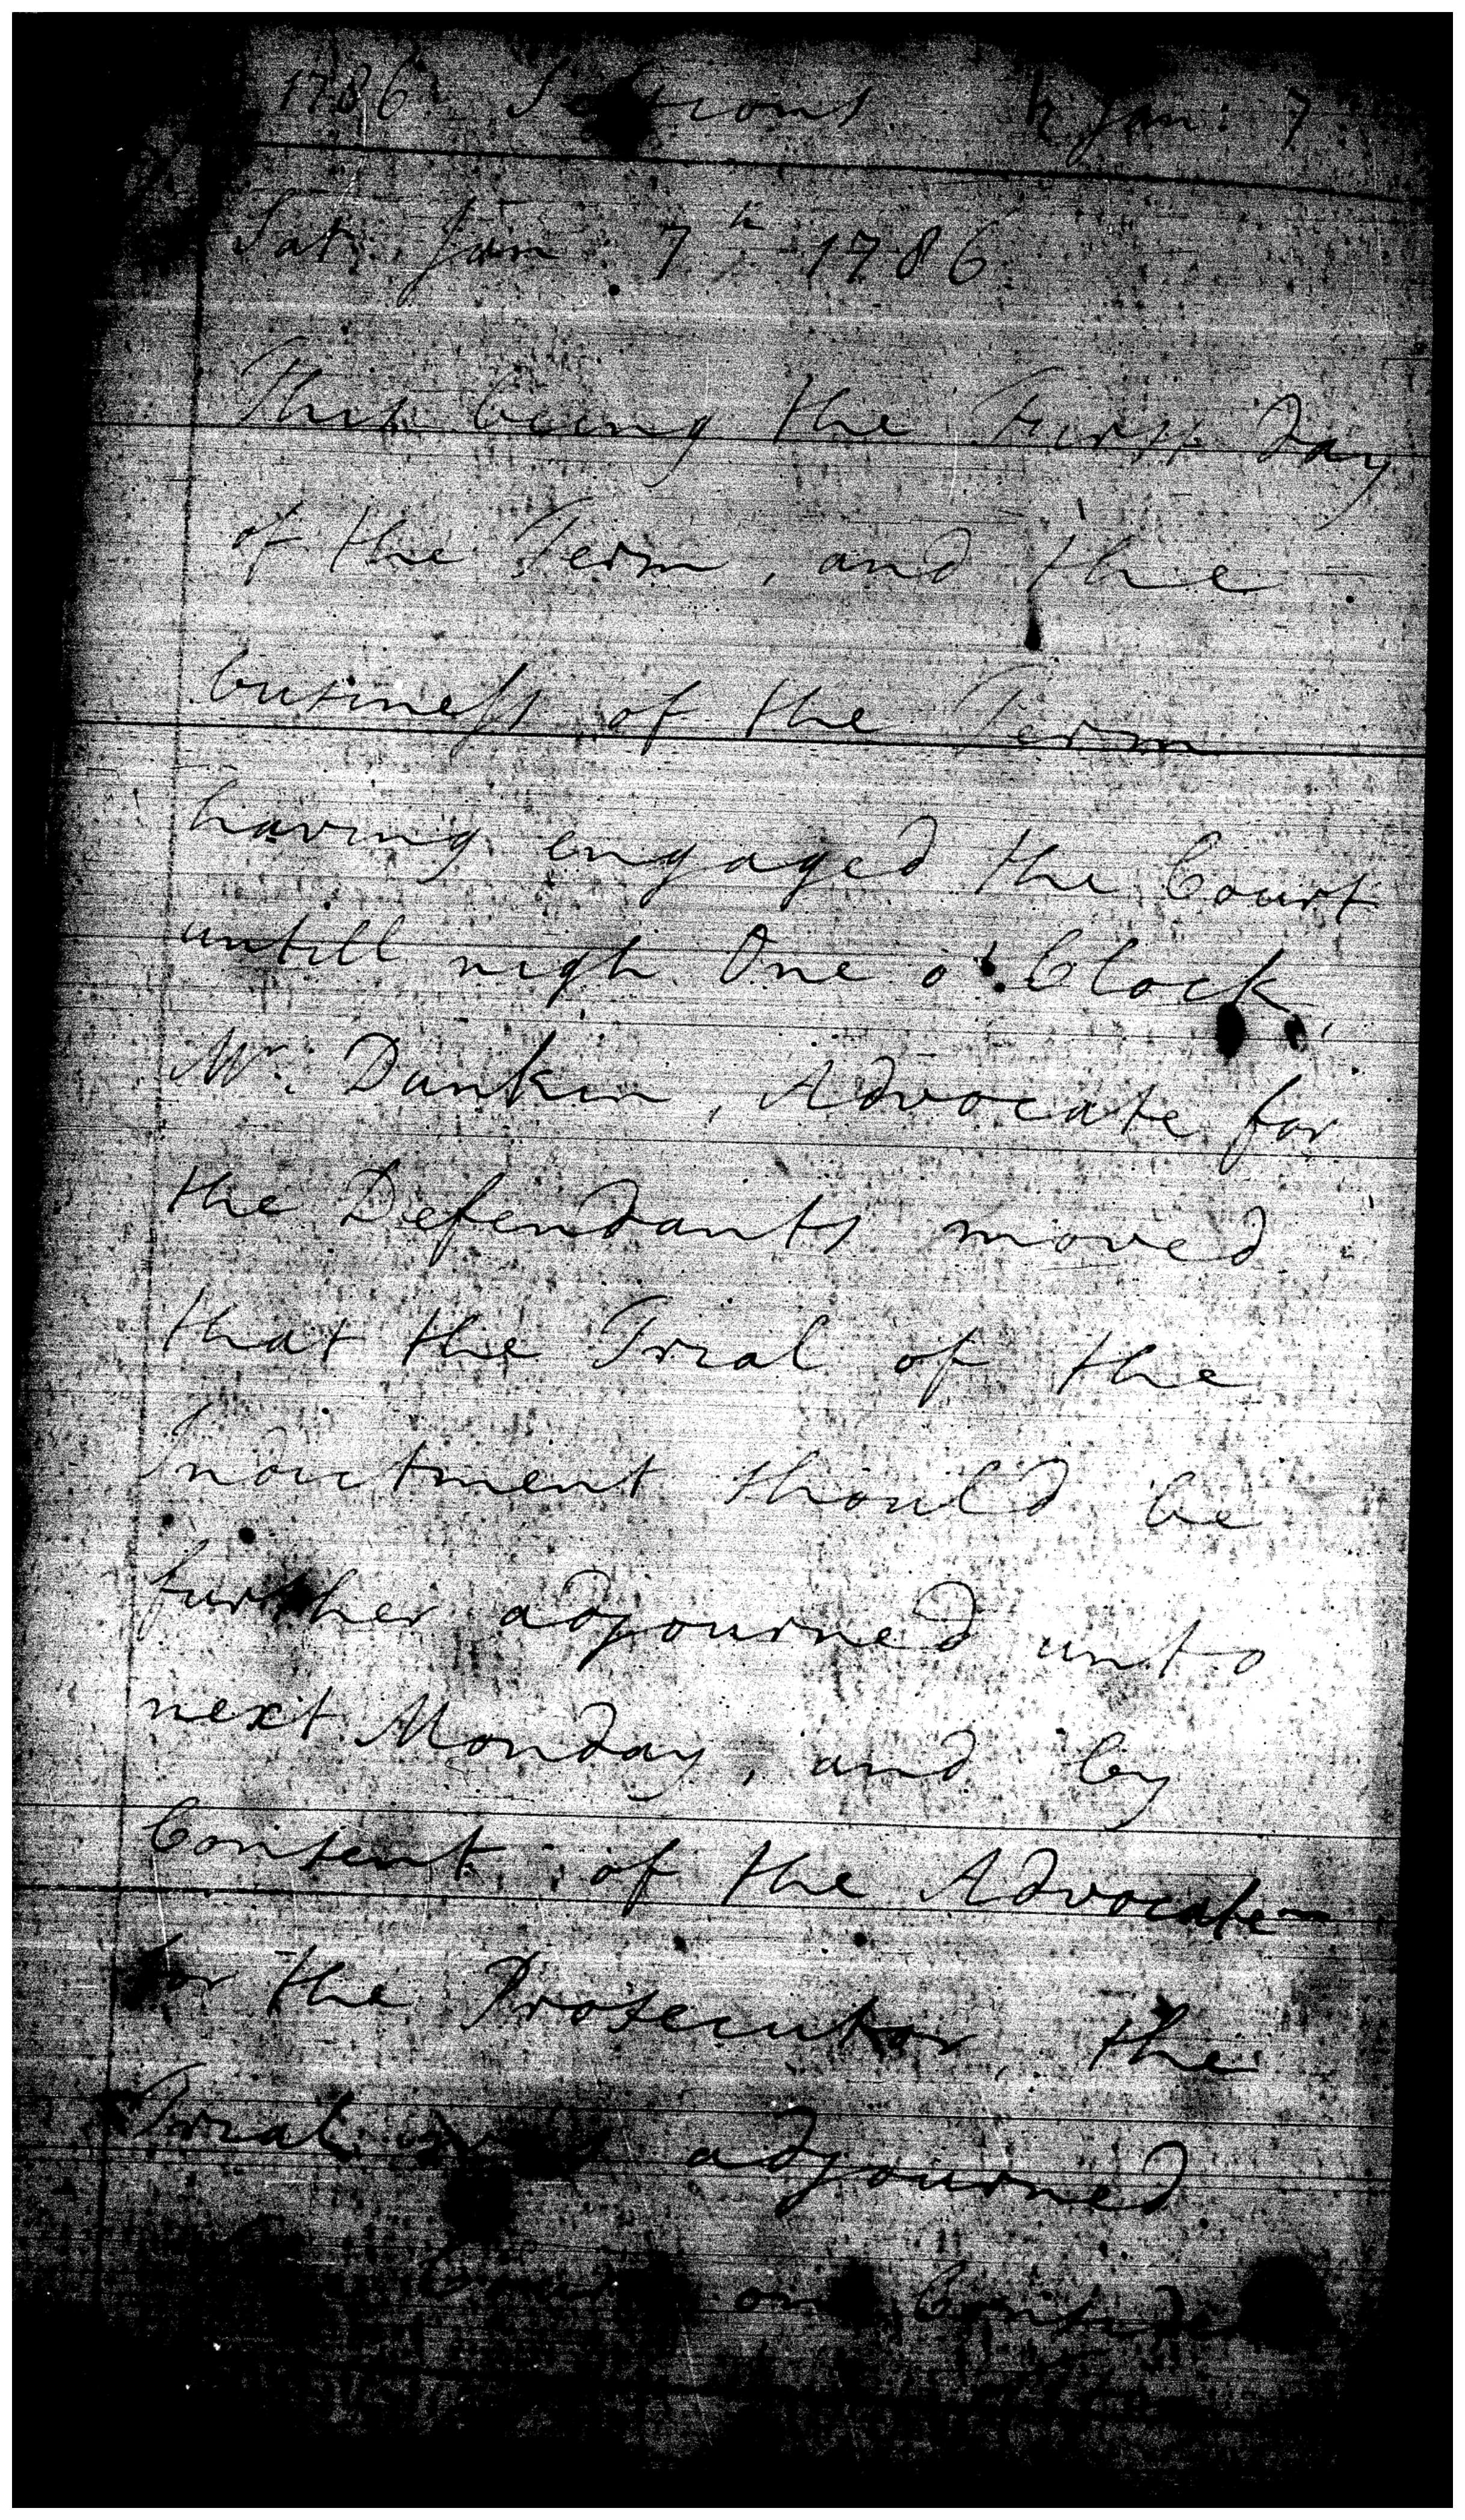 1786. Sessions ♄ Jan: 7
Sat. Jan. 7th 1786
This being the First Day
of the Term, and the
business of the Term
having engaged the Court
untill nigh One o'Clock,
Mr. Dunkin, Advocate for
the Defendants moved
that the Trial of the
Indictment should be
further adjourned unto
next Monday, and by
Consent of the Advocate
for the Prosecutor, the
Trial was adjourned
Court on